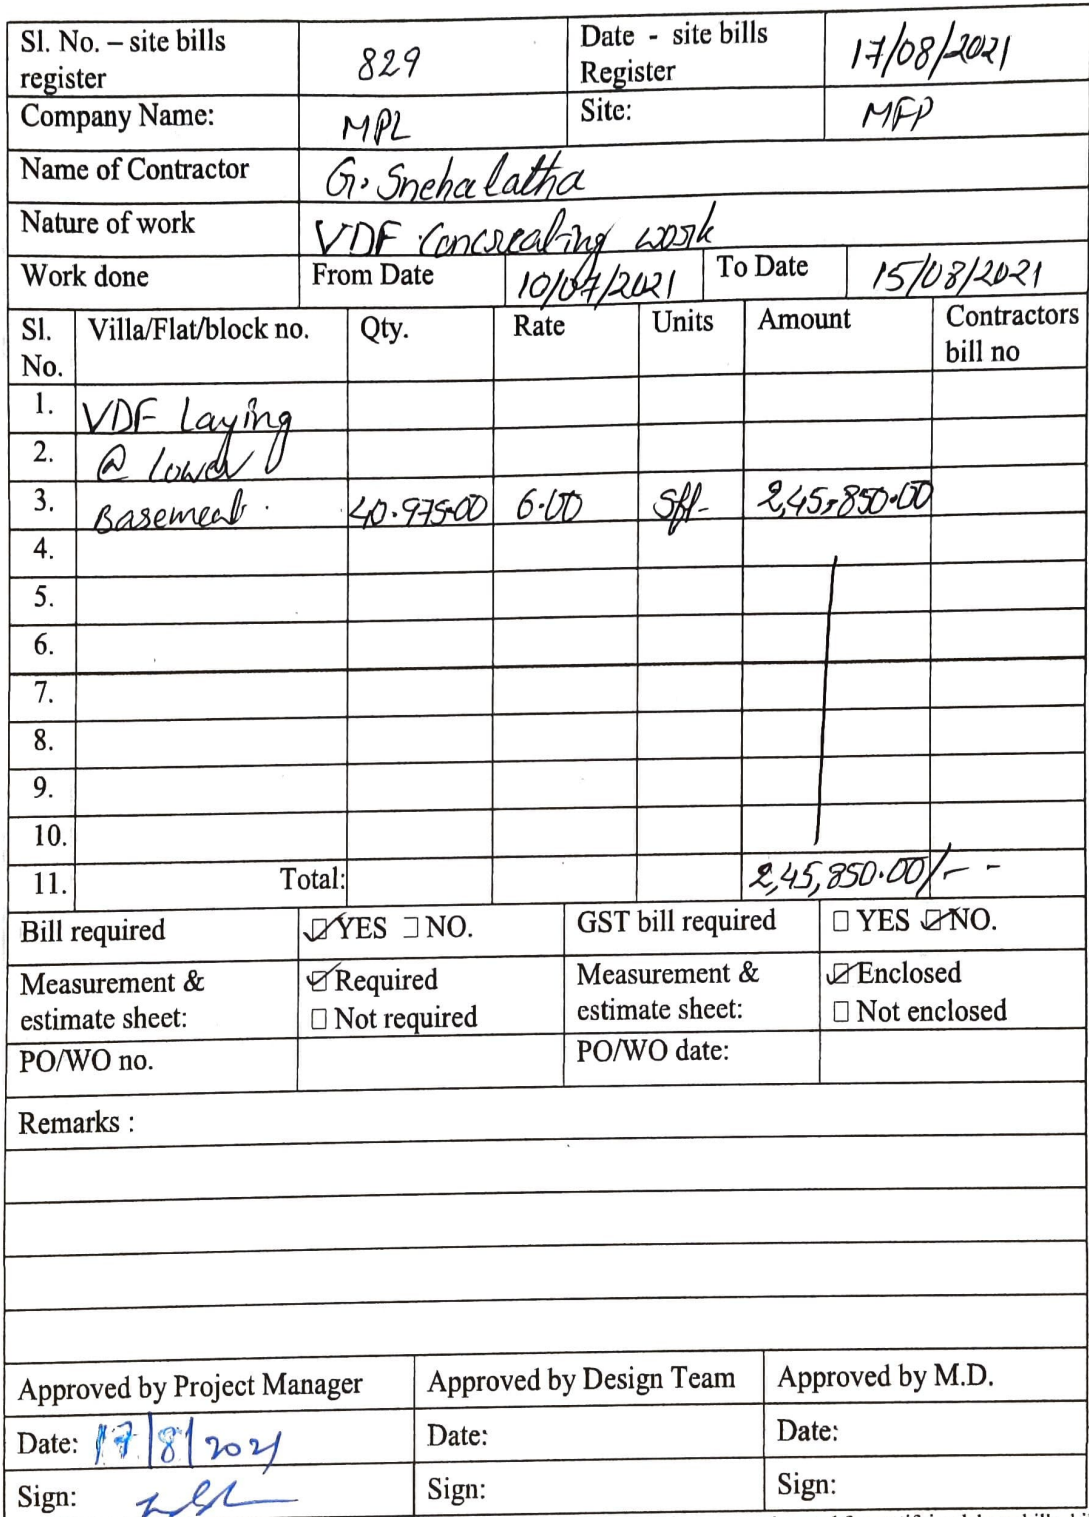 Sl. No. – site bills register 829 Date - site bills Register 17/08/2021
Company Name: MPL Site: MFP
Name of Contractor G. Snehalatha
Nature of work VDF Concreating work
Work done From Date 10/07/2021 To Date 15/08/2021
Sl. No. Villa/Flat/block no. Qty. Rate Units Amount Contractors bill no
1. VDF Laying
2. @ Lower
3. Basement. 40.975.00 6.00 Sft- 2,45,850.00
4.
5.
6.
7.
8.
9.
10.
11. Total: 2,45,850.00/--
Bill required YES NO. GST bill required YES NO.
Measurement & estimate sheet: Required Not required Measurement & estimate sheet: Enclosed Not enclosed
PO/WO no. PO/WO date:
Remarks :
Approved by Project Manager Approved by Design Team Approved by M.D.
Date: 17/8/2021 Date: Date:
Sign: Sign: Sign: